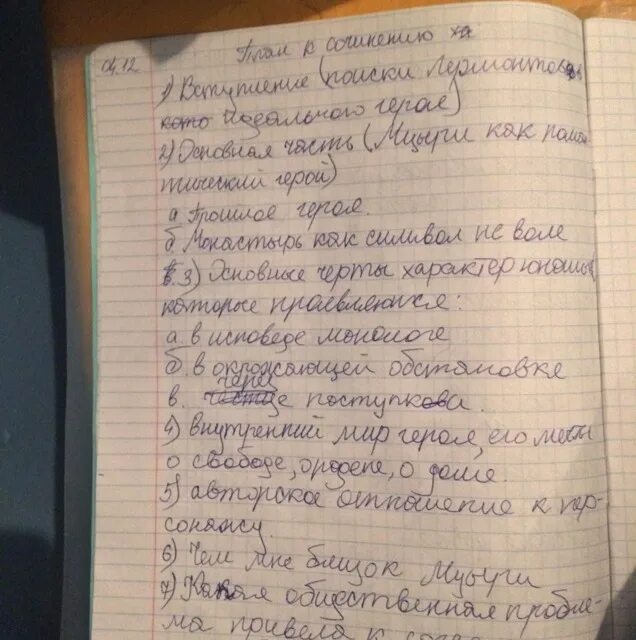 04.12
План к сочинению
1) Вступление (поиски Лермонтовым
идеального героя)
2) Основная часть (Мцыри как роман
тический герой)
а Прошлое героя.
б Монастырь как символ не воле
в. 3) Основные черты характер юноши,
которые проевляются:
а. в исповеде монологе
б. в окружающей обстановке
в. через поступка.
4) внутренний мир героя, его мечты
о свободе, о доме.
5) авторское отношение к пер-
сонажу.
6) Чем мне близок Мцыри
7) Какая общественная пробле-
ма привела к